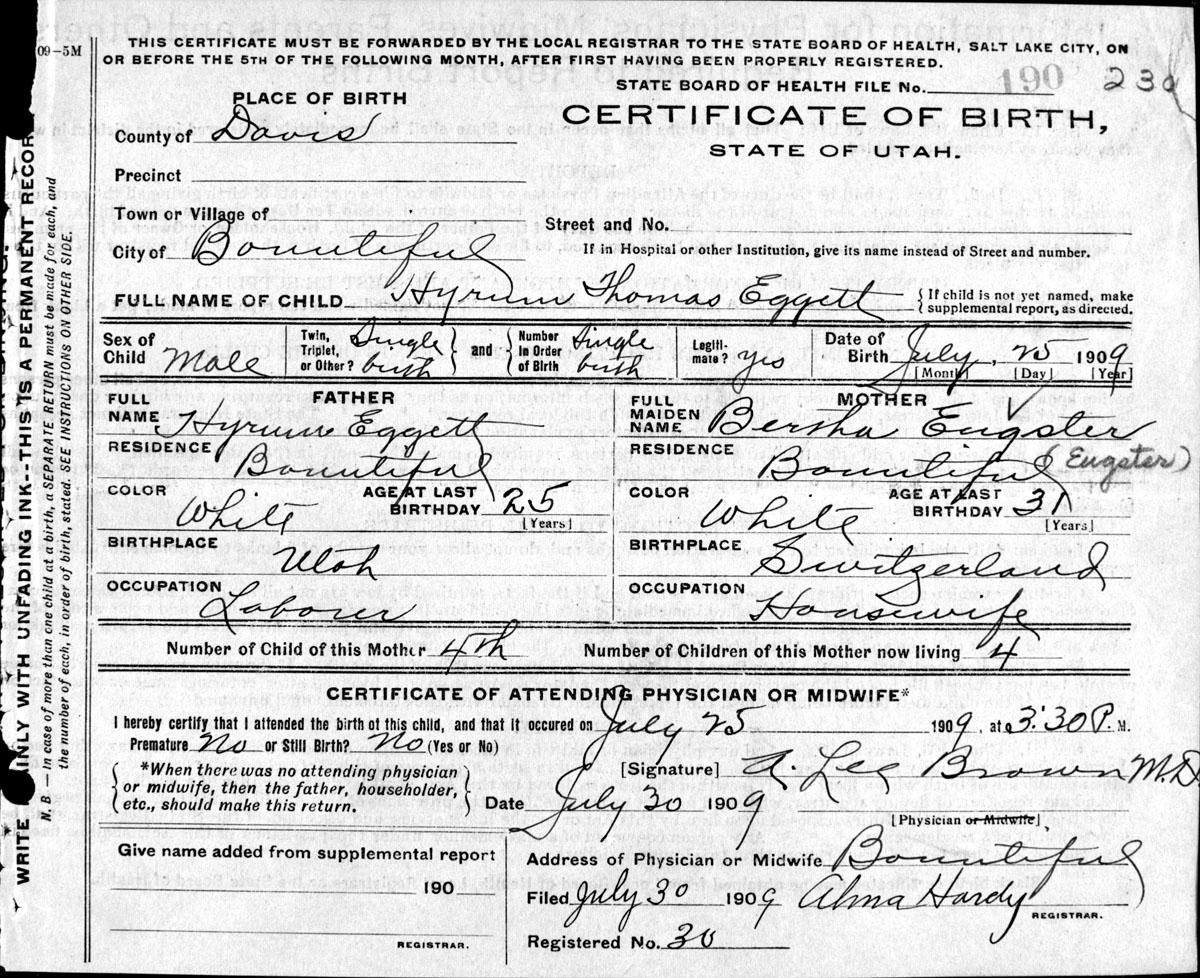 09–5M
THIS CERTIFICATE MUST BE FORWARDED BY THE LOCAL REGISTRAR TO THE STATE BOARD OF HEALTH, SALT LAKE CITY, ON
OR BEFORE THE 5TH OF THE FOLLOWING MONTH, AFTER FIRST HAVING BEEN PROPERLY REGISTERED.
STATE BOARD OF HEALTH FILE No. 190 230
PLACE OF BIRTH
CERTIFICATE OF BIRTH,
STATE OF UTAH.
County of Davis
Precinct
Town or Village of
Street and No.
City of Bountiful
If in Hospital or other Institution, give its name instead of Street and number.
FULL NAME OF CHILD Hyrum Thomas Eggett { If child is not yet named, make supplemental report, as directed.
Sex of Child Male
Twin, Triplet, or Other? Single birth } and { Number in Order of Birth Single birth
Legiti-mate? yes
Date of Birth July 25 1909
[Month] [Day] [Year]
FATHER
FULL NAME Hyrum Eggett
RESIDENCE Bountiful
COLOR White AGE AT LAST BIRTHDAY 25 [Years]
BIRTHPLACE Utah
OCCUPATION Laborer
MOTHER
FULL MAIDEN NAME Bertha Eugster
RESIDENCE Bountiful (Eugster)
COLOR White AGE AT LAST BIRTHDAY 31 [Years]
BIRTHPLACE Switzerland
OCCUPATION Housewife
Number of Child of this Mother 4th Number of Children of this Mother now living 4
CERTIFICATE OF ATTENDING PHYSICIAN OR MIDWIFE*
I hereby certify that I attended the birth of this child, and that it occured on July 25 1909, at 3:30 P. M.
Premature No or Still Birth? No (Yes or No)
{ *When there was no attending physician
or midwife, then the father, householder,
etc., should make this return. }
[Signature] A. Lee Brown M.D
Date July 30 1909
[Physician or Midwife]
Give name added from supplemental report
190
REGISTRAR.
Address of Physician or Midwife Bountiful
Filed July 30 1909 Alma Hardy
REGISTRAR.
Registered No. 30
INLY WITH UNFADING INK--THIS IS A PERMANENT RECOR
WRITE
N. B. — In case of more than one child at a birth, a SEPARATE RETURN must be made for each, and
the number of each, in order of birth, stated. SEE INSTRUCTIONS ON OTHER SIDE.